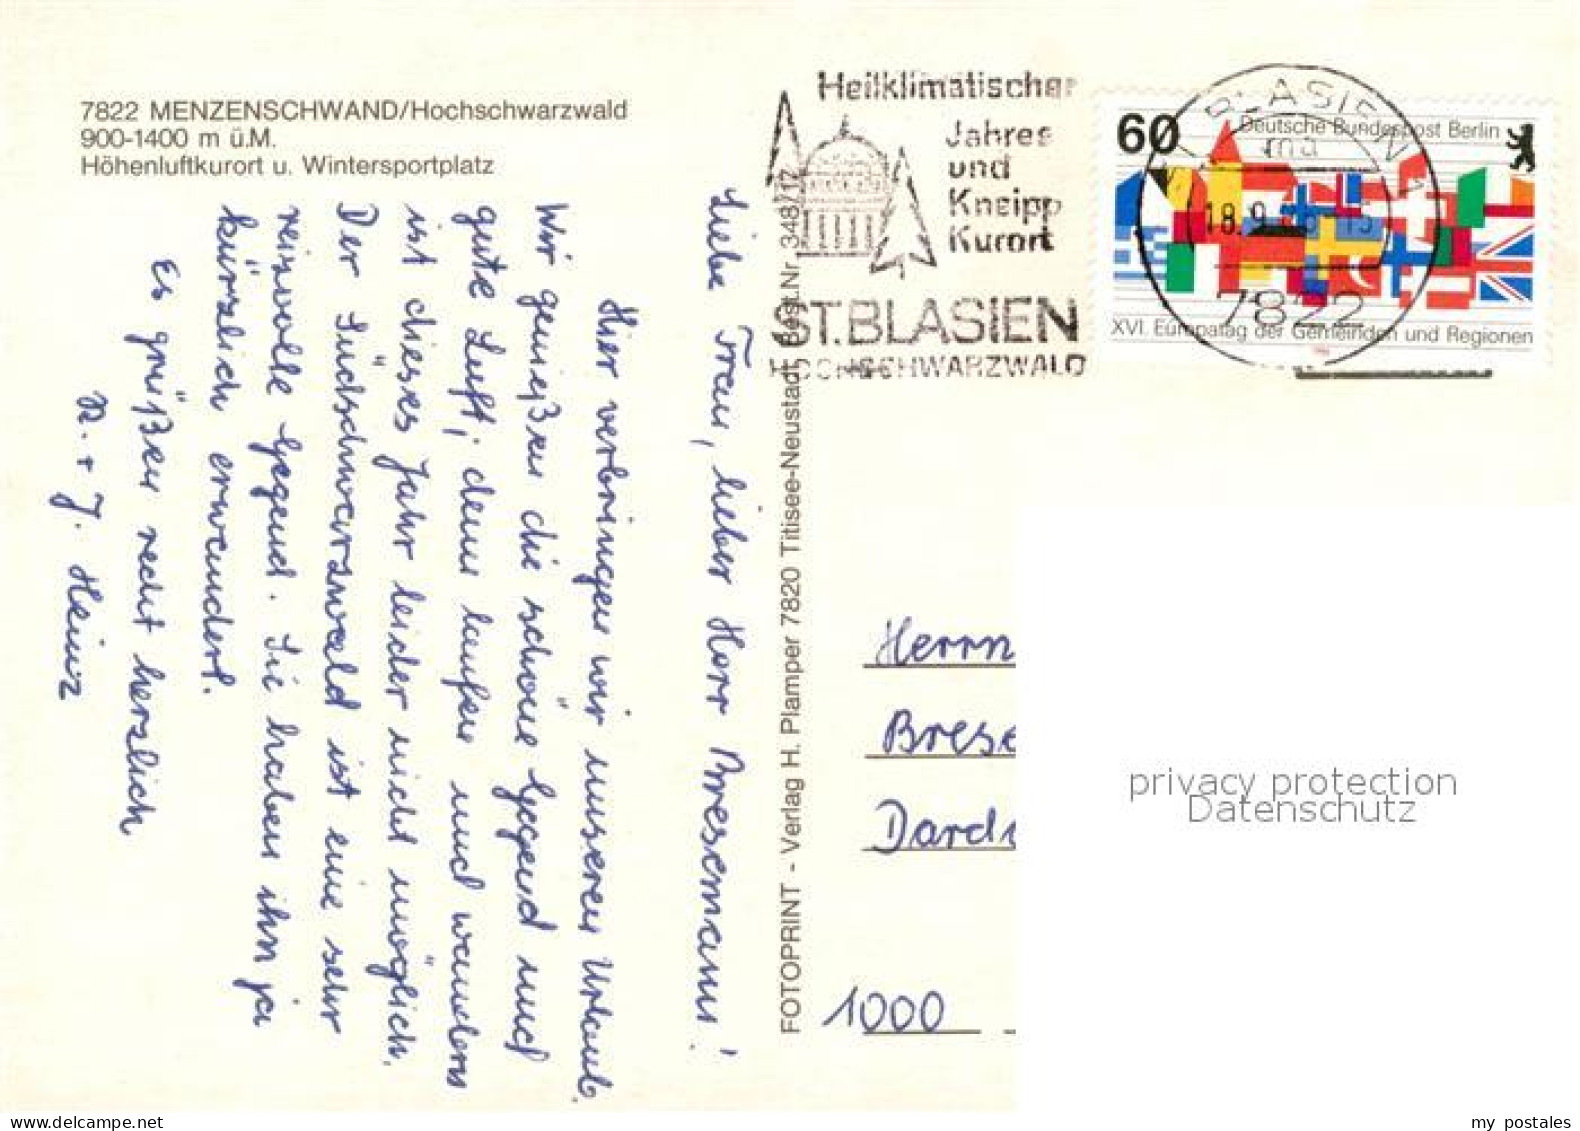 7822 MENZENSCHWAND/Hochschwarzwald
900-1400 m ü.M.
Höhenluftkurort u. Wintersportplatz
Liebe Frau, lieber Herr Bresemann!
Hier verbringen wir unseren Urlaub.
Wir genießen die schöne Gegend und
gute Luft; denn laufen und wandern
ist dieses Jahr leider nicht möglich.
Der Südschwarzwald ist eine sehr
reizvolle Gegend. Sie haben ihn ja
kürzlich erwandert.
Es grüßen recht herzlich
R. + J. Heinz
FOTOPRINT - Verlag H. Plamper 7820 Titisee-Neustadt Best.Nr. 348/17
Heilklimatischer
Jahres
und
Kneipp
Kurort
ST.BLASIEN
HOCHSCHWARZWALD
60
Deutsche Bundespost Berlin
XVI. Europatag der Gemeinden und Regionen
ST. BLASIEN 1
ma
18.9. 15
7822
Herrn
Brese
Dard
1000
privacy protection
Datenschutz
my postales